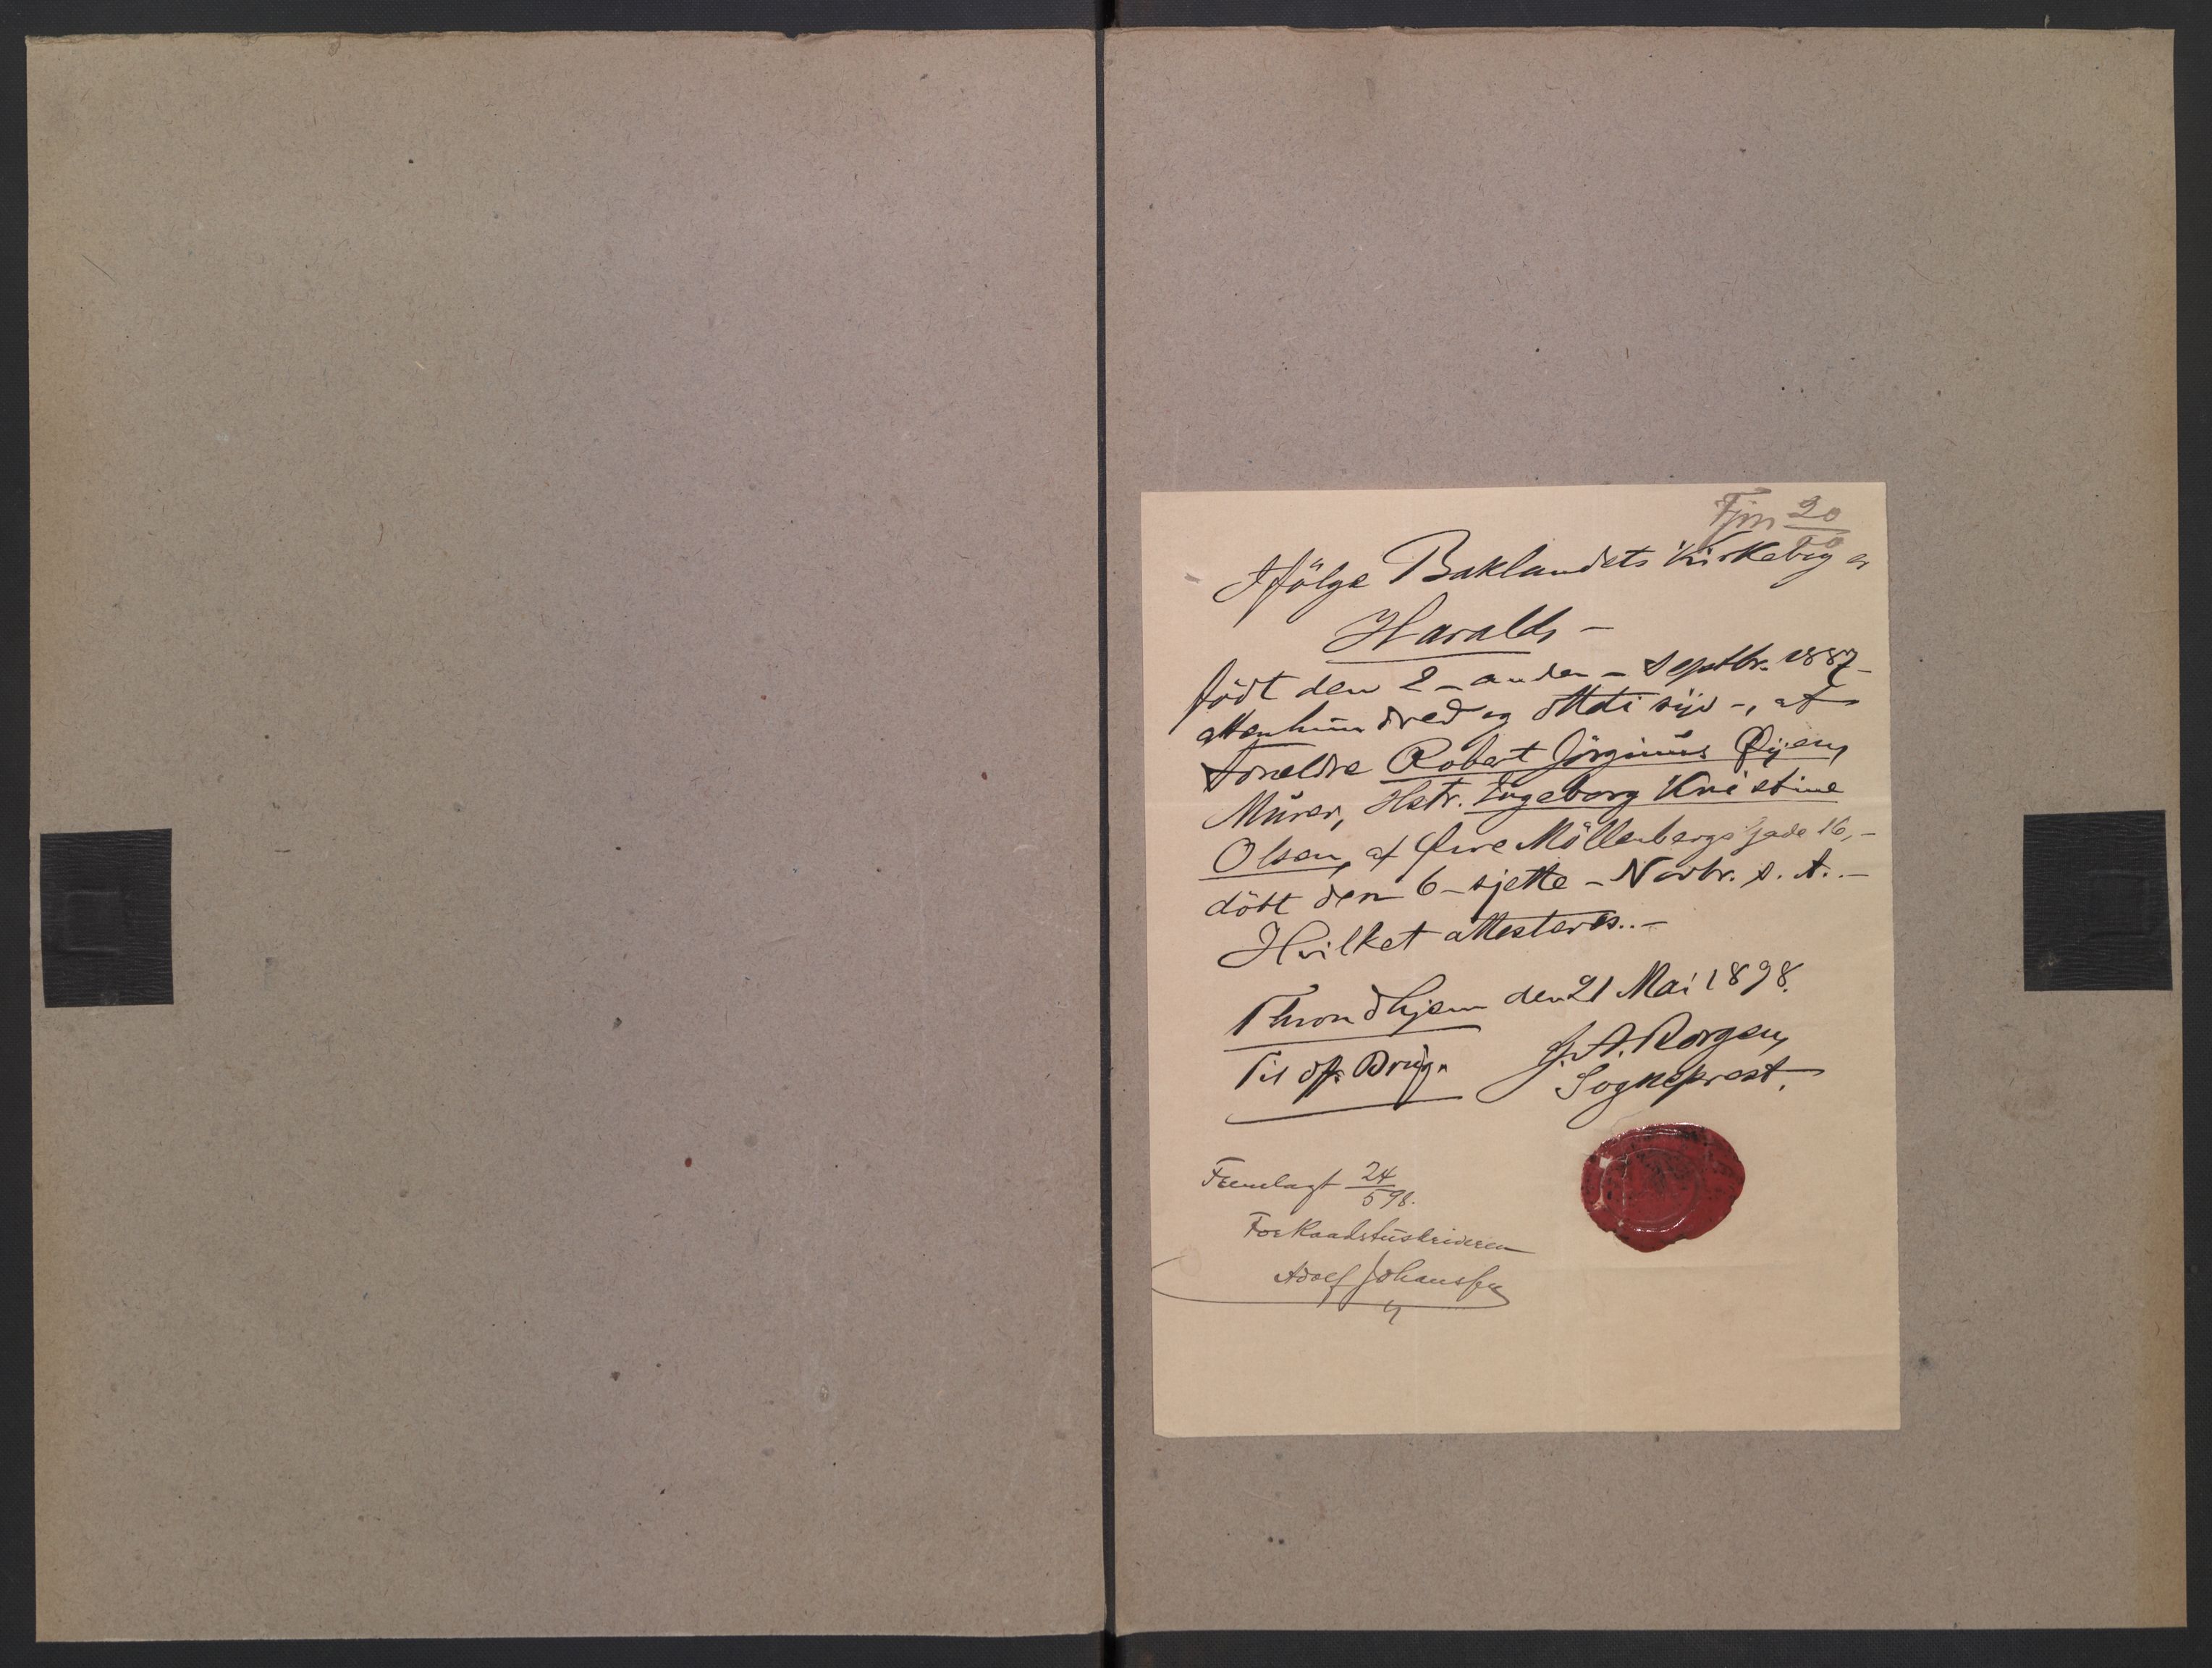 Fjm 20
Ifölge Baklandets Kirkebog er
Harald, -
födt den 2 - anden - Septbr. 1887 -
attenhundred og ottti syv -, af
Foreldre Robert Jörginus Øyen,
Murer, Hstr. Ingeborg Kristine
Olsen, af Øvre Möllenbergs Gade 16, -
döbt den 6 - sjette - Novbr. s. A. -
Hvilket attesteres. -
Throndhjem den 21 Mai 1898.
Til off. Brug.
J. A. Rorgen,
Sogneprest.
Fremlagt 24/5 98.
For Raadstuskriveren
Adolf Johansen